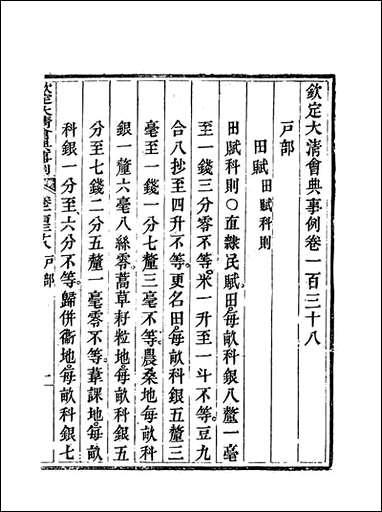 欽定大清會典事例卷一百三十八
戶部
田賦田賦科則
田賦科則○直隸民賦田每畝科銀八釐一毫
至一錢三分零不等米一升至一斗不等豆九
合八抄至四升不等更名田每畝科銀五釐三
毫至一錢一分七釐三毫不等農桑地每畝科
銀一釐六毫八絲零蒿草籽粒地每畝科銀五
分至七錢二分五釐一毫零不等葦課地每畝
科銀一分至六分不等歸併衞地每畝科銀七
欽定大清會典事例 卷一百三十八 戶部 一